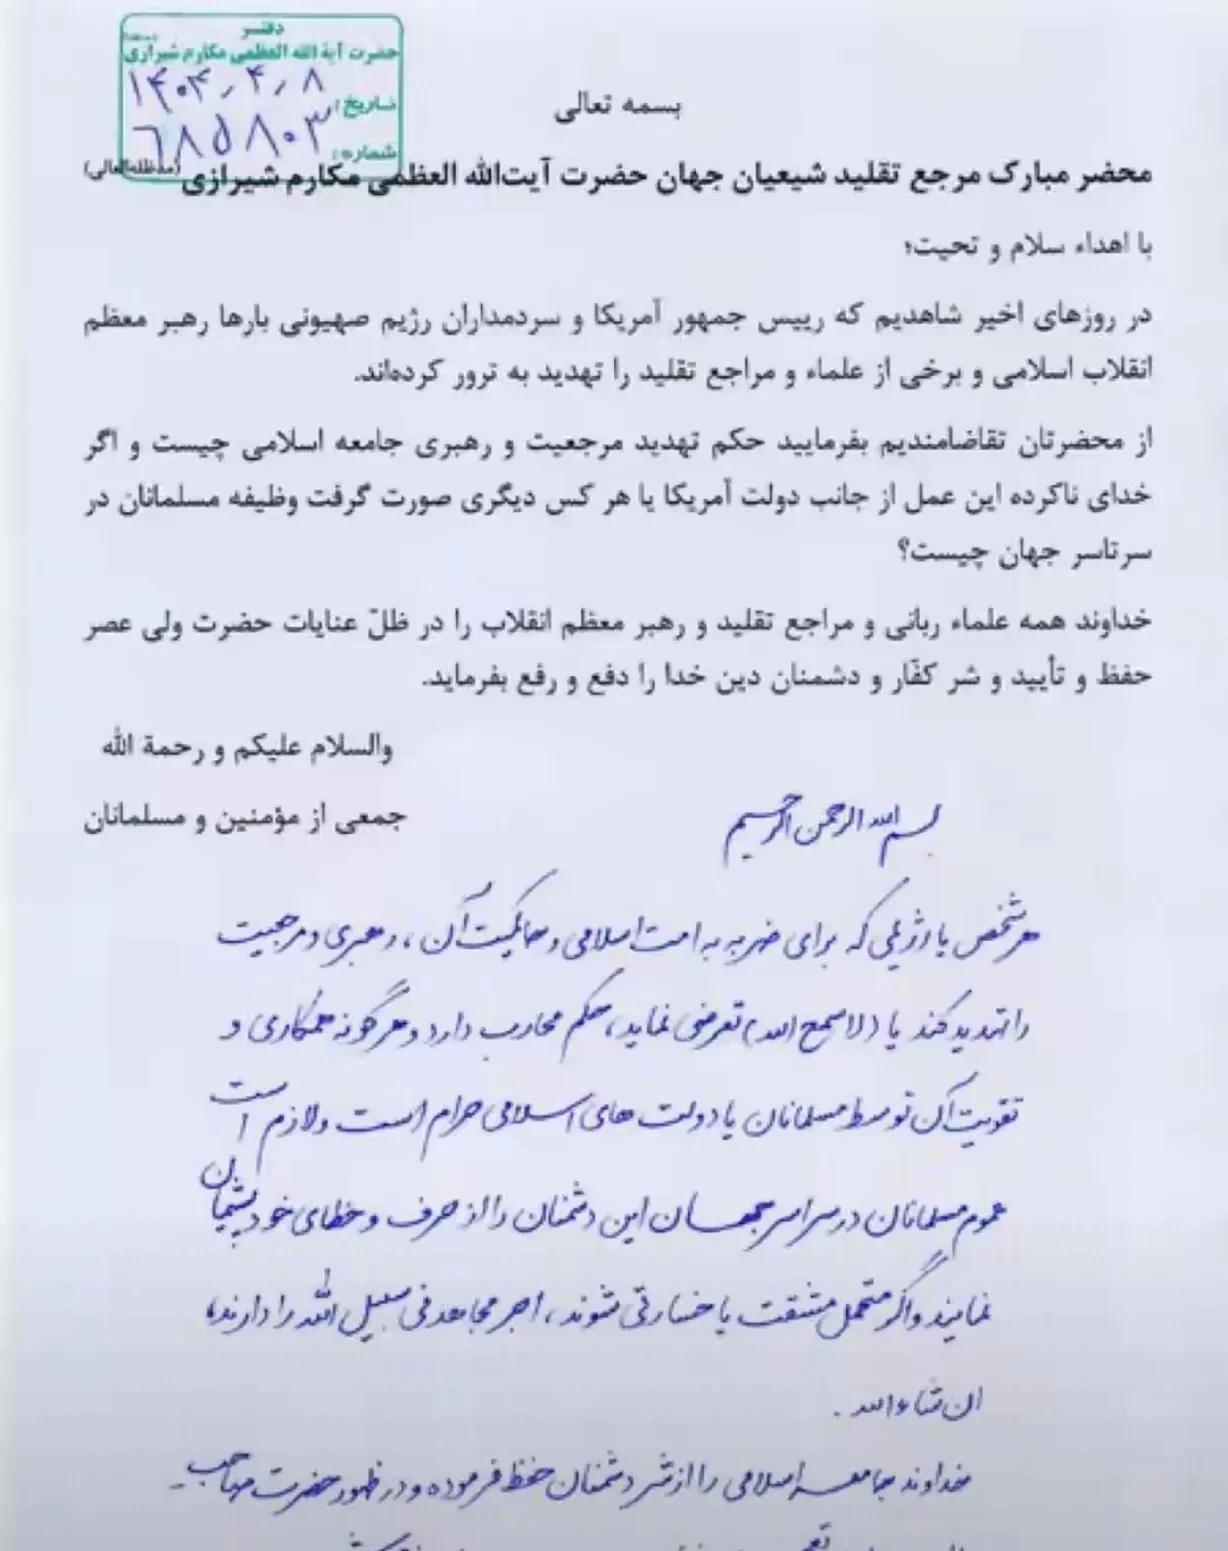 دفتر
حضرت آیة الله العظمی مکارم شیرازی
تاریخ: ۱۴۰۴٫۴٫۸
شماره: ۶۸۵۸۰۳
بسمه تعالی
محضر مبارک مرجع تقلید شیعیان جهان حضرت آیت‌الله العظمی مکارم شیرازی (مدظله‌العالی)
با اهداء سلام و تحیت؛
در روزهای اخیر شاهدیم که رییس جمهور آمریکا و سردمداران رژیم صهیونی بارها رهبر معظم
انقلاب اسلامی و برخی از علماء و مراجع تقلید را تهدید به ترور کرده‌اند.
از محضرتان تقاضامندیم بفرمایید حکم تهدید مرجعیت و رهبری جامعه اسلامی چیست و اگر
خدای ناکرده این عمل از جانب دولت آمریکا یا هر کس دیگری صورت گرفت وظیفه مسلمانان در
سرتاسر جهان چیست؟
خداوند همه علماء ربانی و مراجع تقلید و رهبر معظم انقلاب را در ظلّ عنایات حضرت ولی عصر
حفظ و تأیید و شر کفّار و دشمنان دین خدا را دفع و رفع بفرماید.
والسلام علیکم و رحمة الله
جمعی از مؤمنین و مسلمانان
بسم الله الرحمن الرحیم
هر شخص یا رژیمی که برای ضربه به امت اسلامی و حاکمیت آن، رهبری و مرجعیت
را تهدید کند یا (لا سمح الله) تعرضی نماید، حکم محارب دارد و هرگونه همکاری و
تقویت آن توسط مسلمانان یا دولت های اسلامی حرام است و لازم است
عموم مسلمانان در سراسر جهان این دشمنان را از حرف و خطای خود پشیمان
نمایند و اگر متحمل مشقت یا خسارتی شوند، اجر مجاهد فی سبیل الله را دارند،
ان شاء الله.
خداوند جامعه اسلامی را از شر دشمنان حفظ فرموده و در ظهور حضرت صاحب